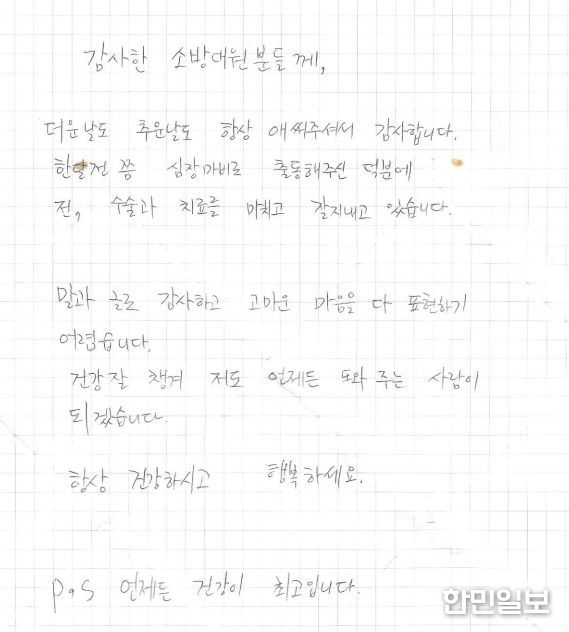 감사한 소방대원분들께,
더운날도 추운날도 항상 애써주셔서 감사합니다.
한달전 쯤 심장마비로 출동해주신 덕분에
전, 수술과 치료를 마치고 잘지내고 있습니다.
말과 글로 감사하고 고마운 마음을 다 표현하기
어렵습니다.
건강 잘 챙겨 저도 언제든 도와주는 사람이
되겠습니다.
항상 건강하시고 행복하세요.
p.s 언제든 건강이 최고입니다.
한민일보